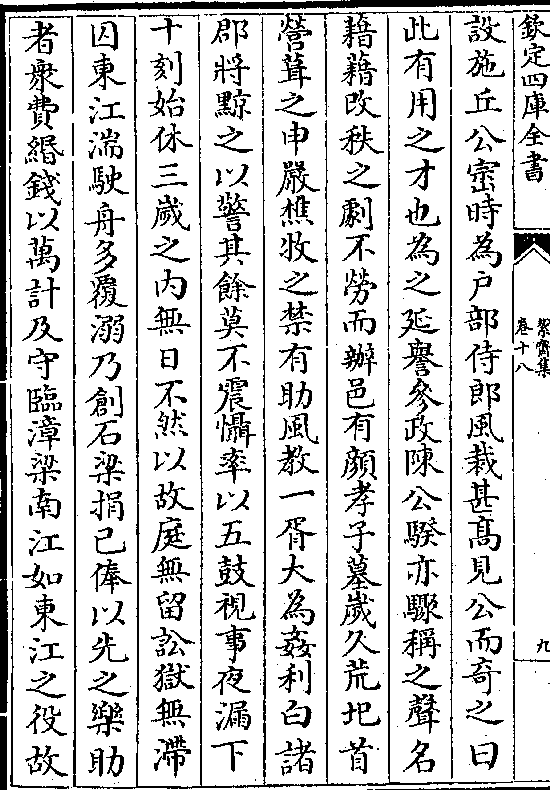 欽定四庫全書
絜齋集
卷十八
九
設施丘公崈時為戶部侍郎風裁甚髙見公而奇之曰
此有用之才也為之延譽參政陳公騤亦驟稱之聲名
藉藉改秩之劇不勞而辦邑有顔孝子墓歲久荒圯首
營葺之申嚴樵牧之禁有助風教一胥大為姦利白諸
郡將黥之以警其餘莫不震懾率以五鼓視事夜漏下
十刻始休三歲之内無日不然以故庭無留訟獄無滯
囚東江湍駛舟多覆溺乃創石梁捐已俸以先之樂助
者衆費緡錢以萬計及守臨漳梁南江如東江之役故